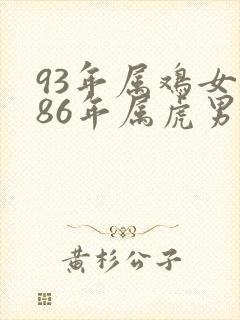 93年属鸡女
86年属虎男
黄杉公子